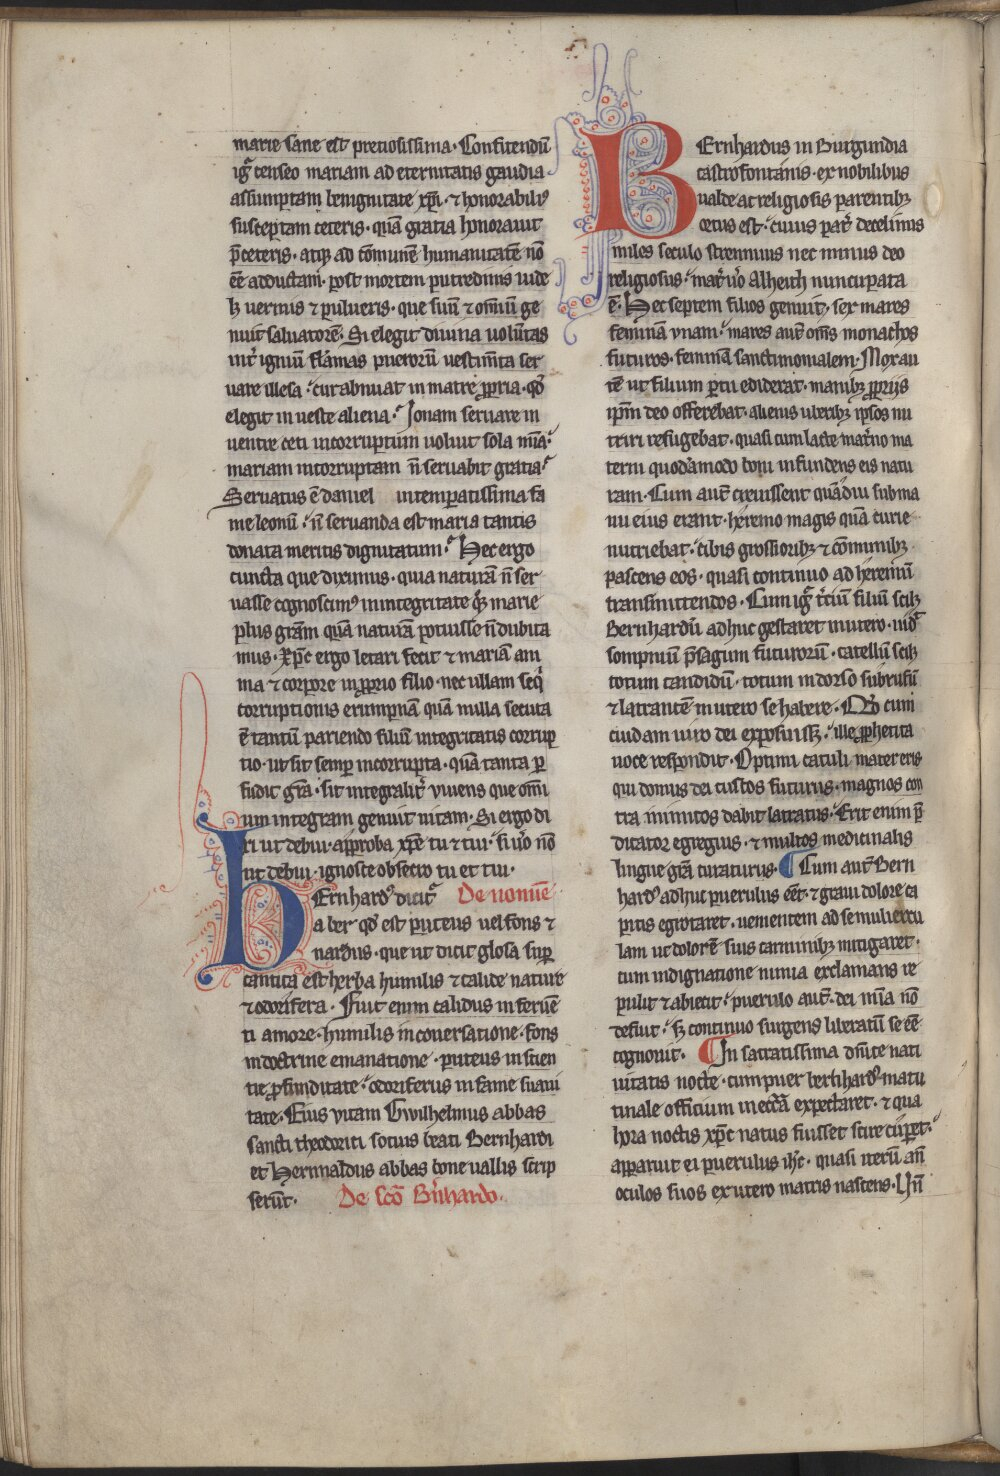 marie sane est preciosissima · Confitendū
igr̄ censeo mariam ad eternitatis gaudia
assumptam benignitate xp̄i · ⁊ honorabiliꝰ
susceptam ceteris · quā gratia honorauit
p̄ ceteris · atqꝫ ad cōmunē humanitatē nō
eē adductam · post mortem putredinis uide
lꝫ uermis ⁊ pulueris · que suū ⁊ omiū ge
nuit saluatorē · Si elegit diuina uolūtas
int̄ igniū flāmas puerorū uestim̄ta ser
uare illesa · cur abnuat in matre ꝓpria · qd̄
elegit in ueste aliena · Jonam seruare in
uentre ceti incorruptum uoluit sola mīa ·
mariam incorruptam n̄ seruabit gratia
Seruatus ē daniel intemperatissima fa
me leonū · n̄ seruanda est maria tantis
donata meritis dignitatum · Hec ergo
cuncta que diximus · quia naturā n̄ ser
uasse cognoscimꝰ in integritate qꝫ marie
plus grām quā naturā potuisse n̄ dubita
mus · Xp̄c ergo letari fecit ⁊ mariā ani
ma ⁊ corpore in ꝓprio filio · nec ullam seq̄
corruptionis erumpnā quā nulla secuta
ē tantū pariendo filiū integritatis corrup
tio · ut sit semꝑ incorrupta · quā tanta ꝑ
fudit grā · sit integralit̄ viuens que omī
um integram genuit uitam · Si ergo di
xi ut debui · approba xp̄e tu ⁊ tui · si u̇o nō
ut debui · ignosce obsecro tu et tui ·
BErnhardꝰ dicit̄ De nomīe
a ber qd̄ est puteus uel fons ⁊
nardus · que ut dicit glosa suꝑ
cantica est herba humilis ⁊ calide nature
⁊ odorifera · Fuit enim calidus in feruē
ti amore · humilis in conersatione · fons
in doctrine emanatione · puteus in scien
tie ꝓfunditate · odoriferus in fame suaui
tate · Eius vitam Gwilhelmus abbas
sancti theodorici socius beati Bernhardi
et Hermaldus abbas bone uallis scrip
serūt · De scō B̄nhardo ·
BErnhardus in Burgundia
castro fontanis · ex nobilibus
ualde ac religiosis parentibꝫ
ortus est · cuius pat̄ decelinus
miles seculo strennuus nec minus deo
religiosus · mat̄ u̇o Alheith nuncupata
ē · Hec septem filios genuit · sex mares
feminā vnam · mares aut̄ om̄s monachos
futuros · feminā sanctimonialem · Mox au
tē ut filium partu ediderat · manibꝫ ꝓpriis
ip̄m deo offerebat · alienis uberibꝫ ipsos nu
triri refugebat · quasi cum lacte mat̄no ma
terni quodāmodo boni infundens eis natu
ram · Cum aut̄ creuissent quādiu sub ma
nu eius erant · heremo magis quā curie
nutriebat · cibis grossioribꝫ ⁊ cōmunibꝫ
pascens eos · quasi continuo ad heremū
transmittendos · Cum igr̄ t̄ciū filiū scilꝫ
Bernhardū adhuc gestaret in utero · uid̄
sompniū p̄sagium futurorū · catellū scilꝫ
totum candidū · totum in dorso subrufū
⁊ latrantē in utero se habere · Qd̄ cum
cuidam uiro dei exposuissꝫ · ille ꝓphetica
uoce respondit · Optimi catuli mater eris
qui domus dei custos futurus · magnos con
tra inimicos dabit latratus · Erit enim p̄
dicator egregius · ⁊ multos medicinalis
lingue grā curaturus · Cum aut̄ Bern
hardꝰ adhuc puerulus eēt · ⁊ graui dolore ca
pitis egrotaret · uementem ad se muliercu
lam ut dolorē suis carminibꝫ mitigaret ·
cum indignatione nimia exclamans re
pulit ⁊ abiecit · puerulo aut̄ · dei mīa nō
defuit · sꝫ continuo surgens liberatū se eē
cognouit · In sacratissima dn̄ice nati
uitatis nocte · cum puer bernhardꝰ matu
tinale officium in ecc̄a expectaret · ⁊ qua
hora noctis xp̄c natus fuisset scire cuꝑet ·
apparuit ei puerulus ih̄c · quasi iterū an̄
oculos suos ex utero matris nascens · Vn̄